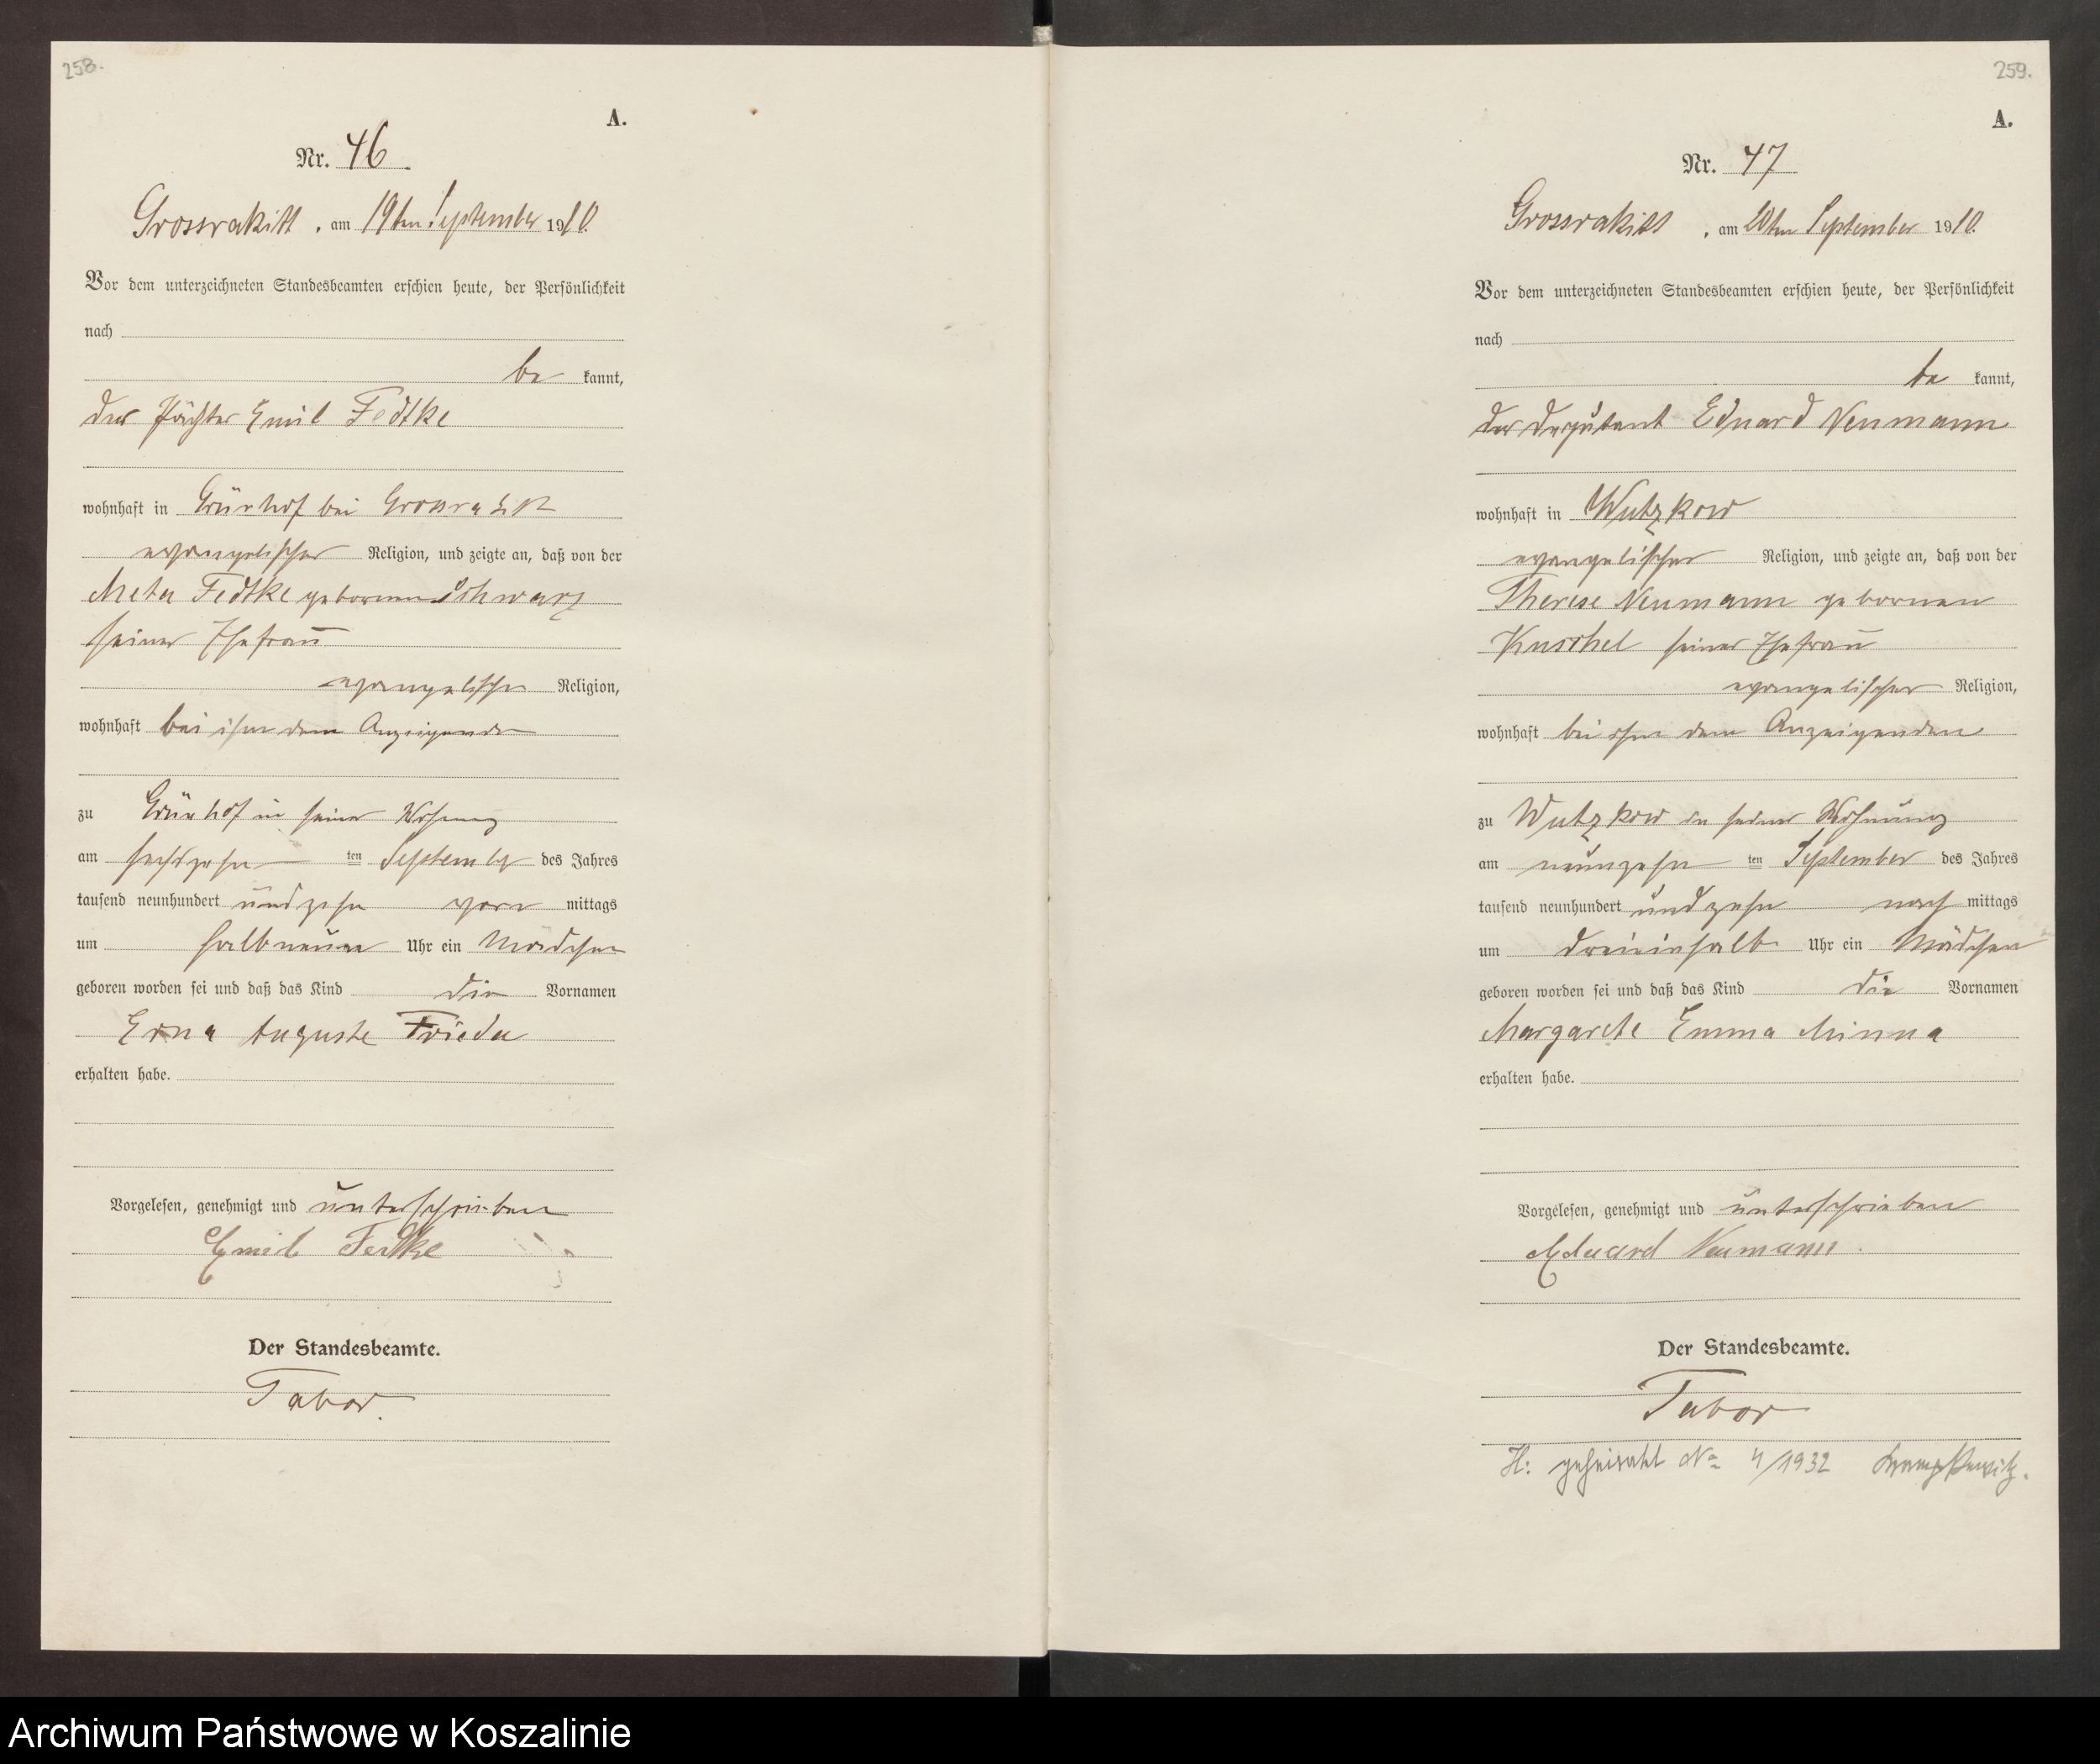 258.
A.
Nr. 46
Grossrakitt, am 19ten September 1910.
Vor dem unterzeichneten Standesbeamten erschien heute, der Persönlichkeit
nach
be kannt,
der Pächter Emil Fedtke
wohnhaft in Grünhof bei Grossrakitt
evangelischer Religion, und zeigte an, daß von der
Meta Fedtke geborenen Schwarz
seiner Ehefrau
evangelischer Religion,
wohnhaft bei ihm dem Anzeigenden
zu Grünhof in seiner Wohnung
am sechszehn ten September des Jahres
tausend neunhundert und zehn vor mittags
um halb neun Uhr ein Mädchen
geboren worden sei und daß das Kind die Vornamen
Erna Auguste Frieda
erhalten habe.
Vorgelesen, genehmigt und unterschrieben
Emil Fedtke
Der Standesbeamte.
Tabor.
259.
A.
Nr. 47
Grossrakitt, am 20ten September 1910.
Vor dem unterzeichneten Standesbeamten erschien heute, der Persönlichkeit
nach
be kannt,
der Deputant Eduard Neumann
wohnhaft in Wutzkow
evangelischer Religion, und zeigte an, daß von der
Therese Neumann geborenen
Kuschel seiner Ehefrau
evangelischer Religion,
wohnhaft bei ihm dem Anzeigenden
zu Wutzkow in seiner Wohnung
am neunzehn ten September des Jahres
tausend neunhundert und zehn nach mittags
um dreieinhalb Uhr ein Mädchen
geboren worden sei und daß das Kind die Vornamen
Margarete Emma Minna
erhalten habe.
Vorgelesen, genehmigt und unterschrieben
Eduard Neumann.
Der Standesbeamte.
Tabor
H: geheiratet No 4/1932
Archiwum Państwowe w Koszalinie